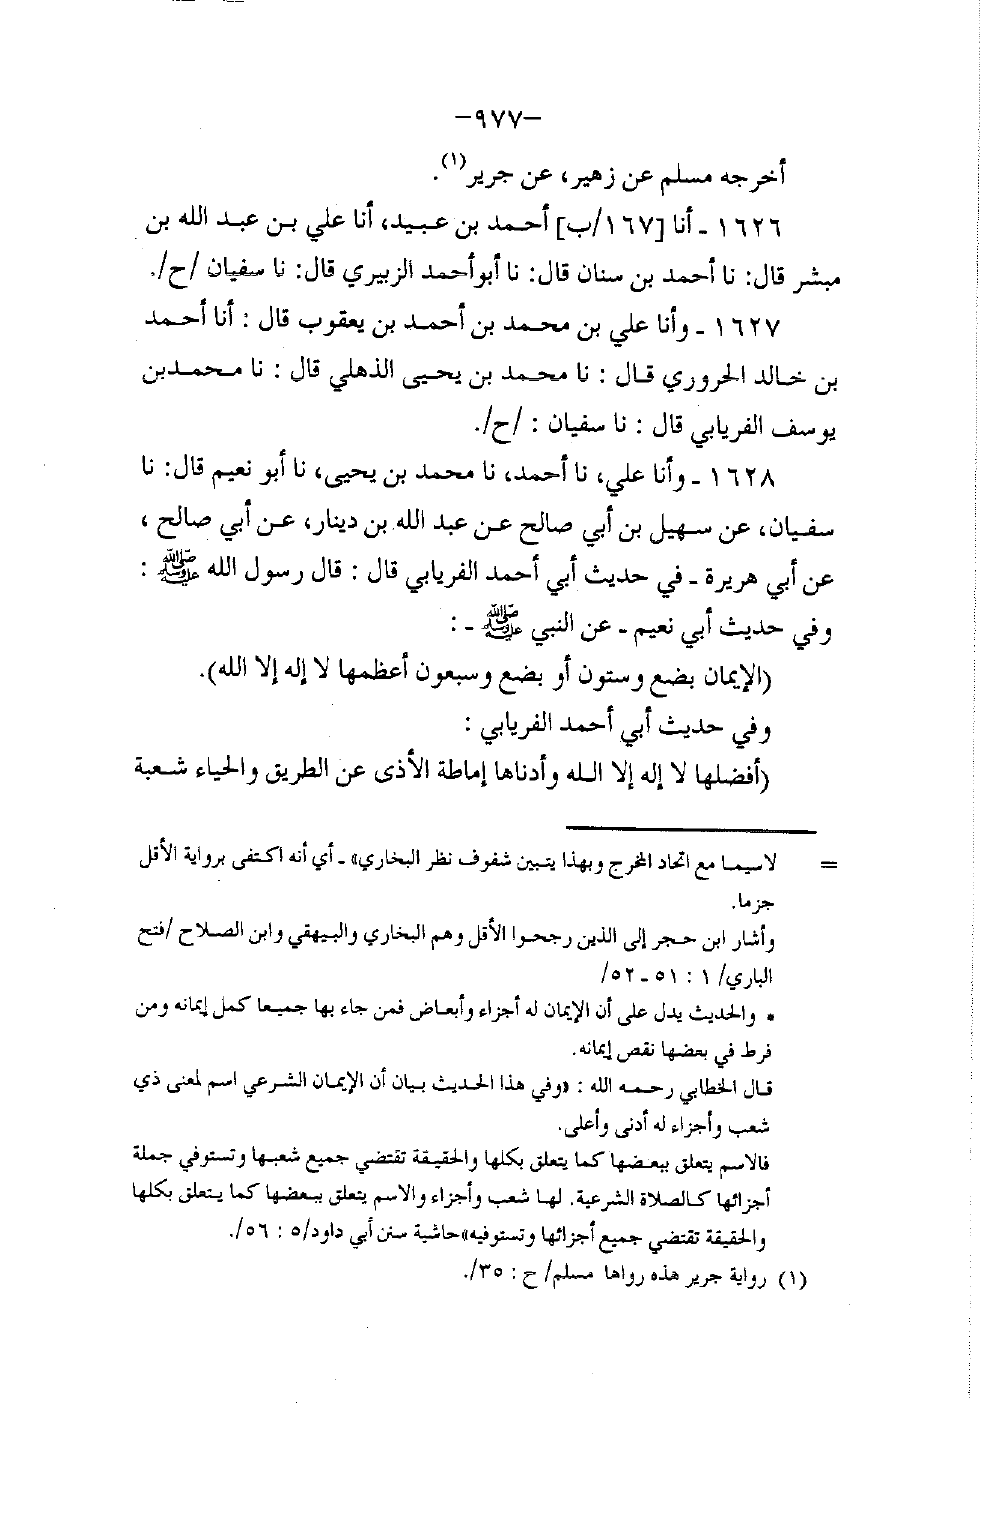 -٩٧٧-
أخرجه مسلم عن زهير، عن جرير(١).
١٦٢٦ - أنا [١٦٧/ب] أحمد بن عبيد، أنا علي بن عبد الله بن
مبشر قال: نا أحمد بن سنان قال: نا أبوأحمد الزبيري قال: نا سفيان /ح/.
١٦٢٧ - وأنا علي بن محمد بن أحمد بن يعقوب قال : أنا أحمد
بن خالد الحروري قال : نا محمد بن يحيى الذهلي قال : نا محمدبن
يوسف الفريابي قال : نا سفيان : /ح/.
١٦٢٨ - وأنا علي، نا أحمد، نا محمد بن يحيى، نا أبو نعيم قال: نا
سفيان، عن سهيل بن أبي صالح عن عبد الله بن دينار، عن أبي صالح ،
عن أبي هريرة - في حديث أبي أحمد الفريابي قال : قال رسول الله ﷺ :
وفي حديث أبي نعيم - عن النبي ﷺ - :
(الإيمان بضع وستون أو بضع وسبعون أعظمها لا إله إلا الله).
وفي حديث أبي أحمد الفريابي :
(أفضلها لا إله إلا الله وأدناها إماطة الأذى عن الطريق والحياء شعبة
= لاسيما مع اتحاد المخرج وبهذا يتبين شفوف نظر البخاري» - أي أنه اكتفى برواية الأقل
جزما.
وأشار ابن حجر إلى الذين رجحوا الأقل وهم البخاري والبيهقي وابن الصلاح /فتح
الباري/ ١ : ٥١ - ٥٢/
• والحديث يدل على أن الإيمان له أجزاء وأبعاض فمن جاء بها جميعا كمل إيمانه ومن
فرط في بعضها نقص إيمانه.
قال الخطابي رحمه الله : «وفي هذا الحديث بيان أن الإيمان الشرعي اسم لمعنى ذي
شعب وأجزاء له أدنى وأعلى.
فالاسم يتعلق ببعضها كما يتعلق بكلها والحقيقة تقتضي جميع شعبها وتستوفي جملة
أجزائها كالصلاة الشرعية. لها شعب وأجزاء والاسم يتعلق ببعضها كما يتعلق بكلها
والحقيقة تقتضي جميع أجزائها وتستوفيه» حاشية سنن أبي داود/٥ : ٥٦/.
(١) رواية جرير هذه رواها مسلم/ ح : ٣٥/.